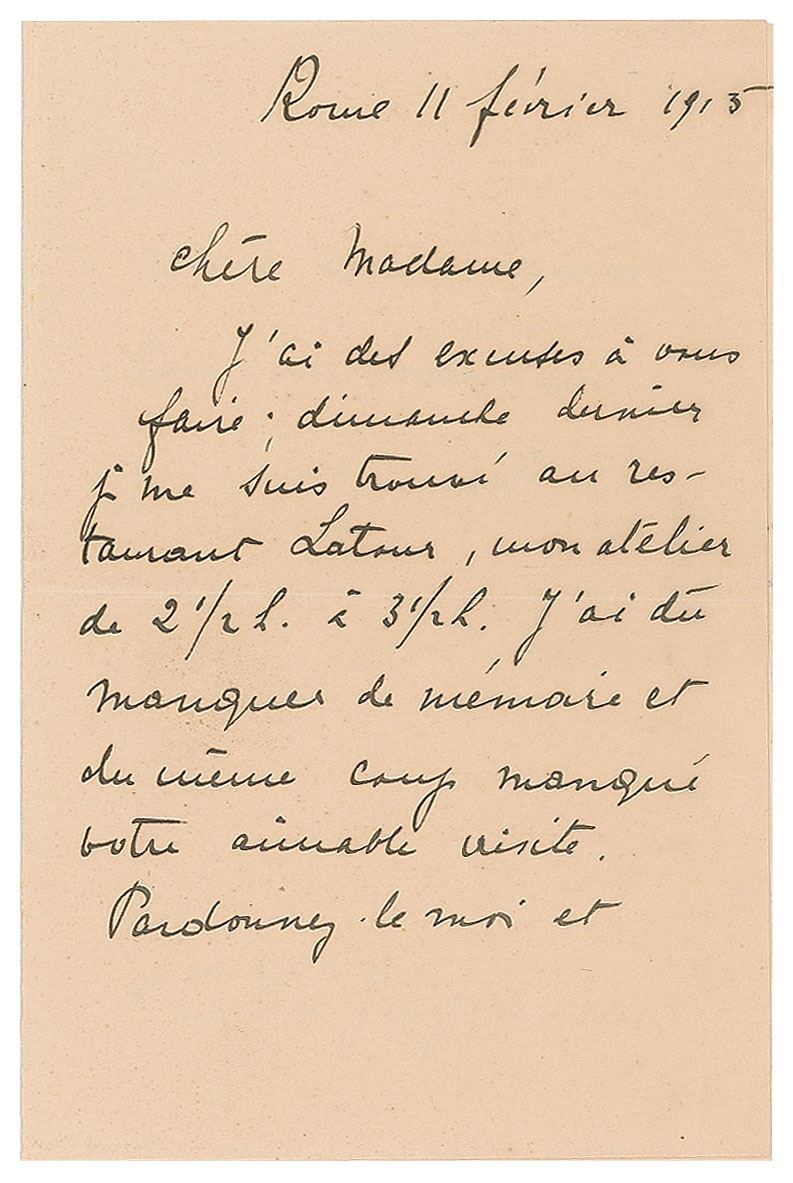 Rome 11 février 1915
chère Madame,
J'ai des excuses à vous
faire ; dimanche dernier
je me suis trouvé au res-
taurant Latour, mon atélier
de 2 1/2 h. à 3 1/2 h. J'ai dû
manquer de mémoire et
du même coup manqué
votre aimable visite.
Pardonnez-le moi et